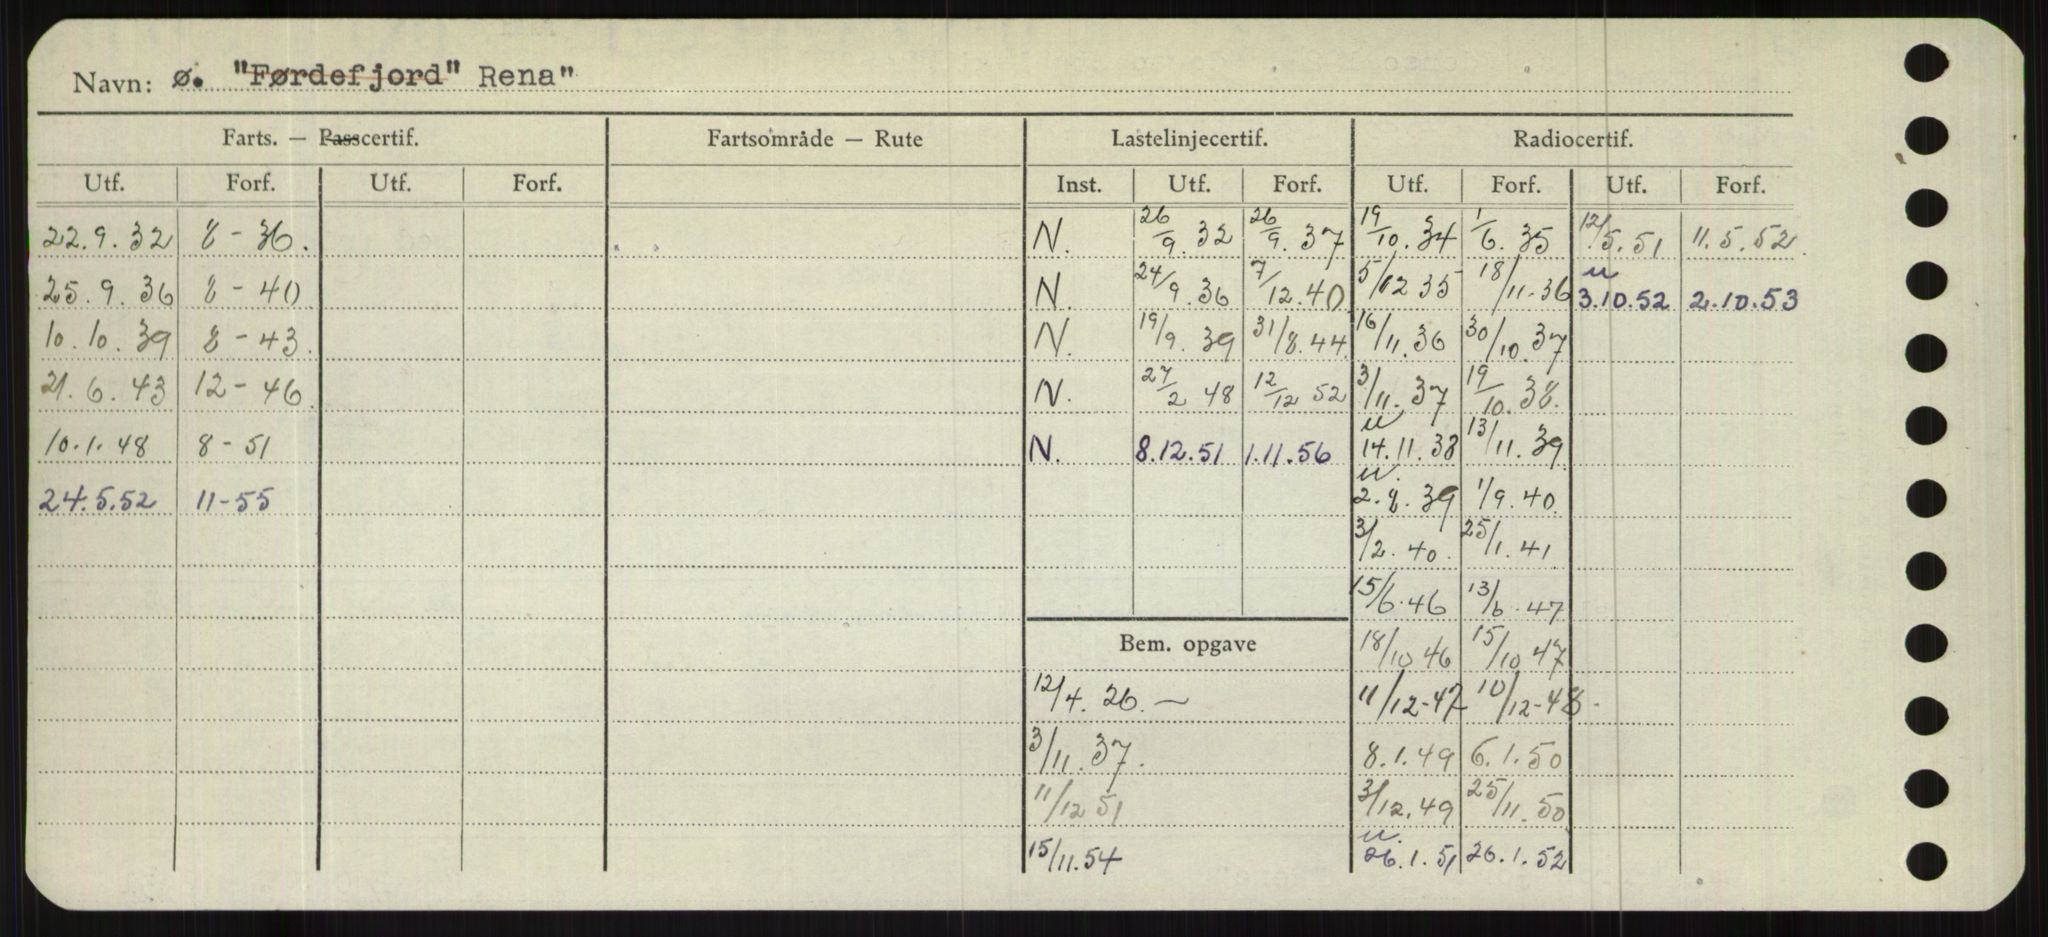 Navn: ø. "Førdefjord" Rena"
Farts. — Passcertif. Fartsområde — Rute Lastelinjecertif. Radiocertif.
Utf. Forf. Utf. Forf. Inst. Utf. Forf. Utf. Forf. Utf. Forf.
22.9.32 8 - 36. N. 26/9.32 26/9.37 19/10.34 1/6.35 12/5.51 11.5.52
25.9.36 8 - 40 N. 24/9.36 7/12.40 5/12 35 18/11-36 u 3.10.52 2.10.53
10.10.39 8 - 43. N. 19/9.39 31/8.44 16/11.36 30/10.37
21.6.43 12 - 46 N. 27/2 48 12/12 52 3/11.37 19/10.38.
10.1.48 8 - 51 N. 8.12.51 1.11.56 u 14.11.38 13/11.39
24.5.52 11-55 u. 2.8.39 1/9.40
3/2.40. 25/1.41
15/6.46 13/6.47
Bem. opgave 18/10 46 15/10 47
12/4.26. — 11/12-47 10/12-48-
3/11.37. 8.1.49 6.1.50
11/12 51 3/12.49 25/11.50
15/11.54 u. 26.1.51 26.1.52